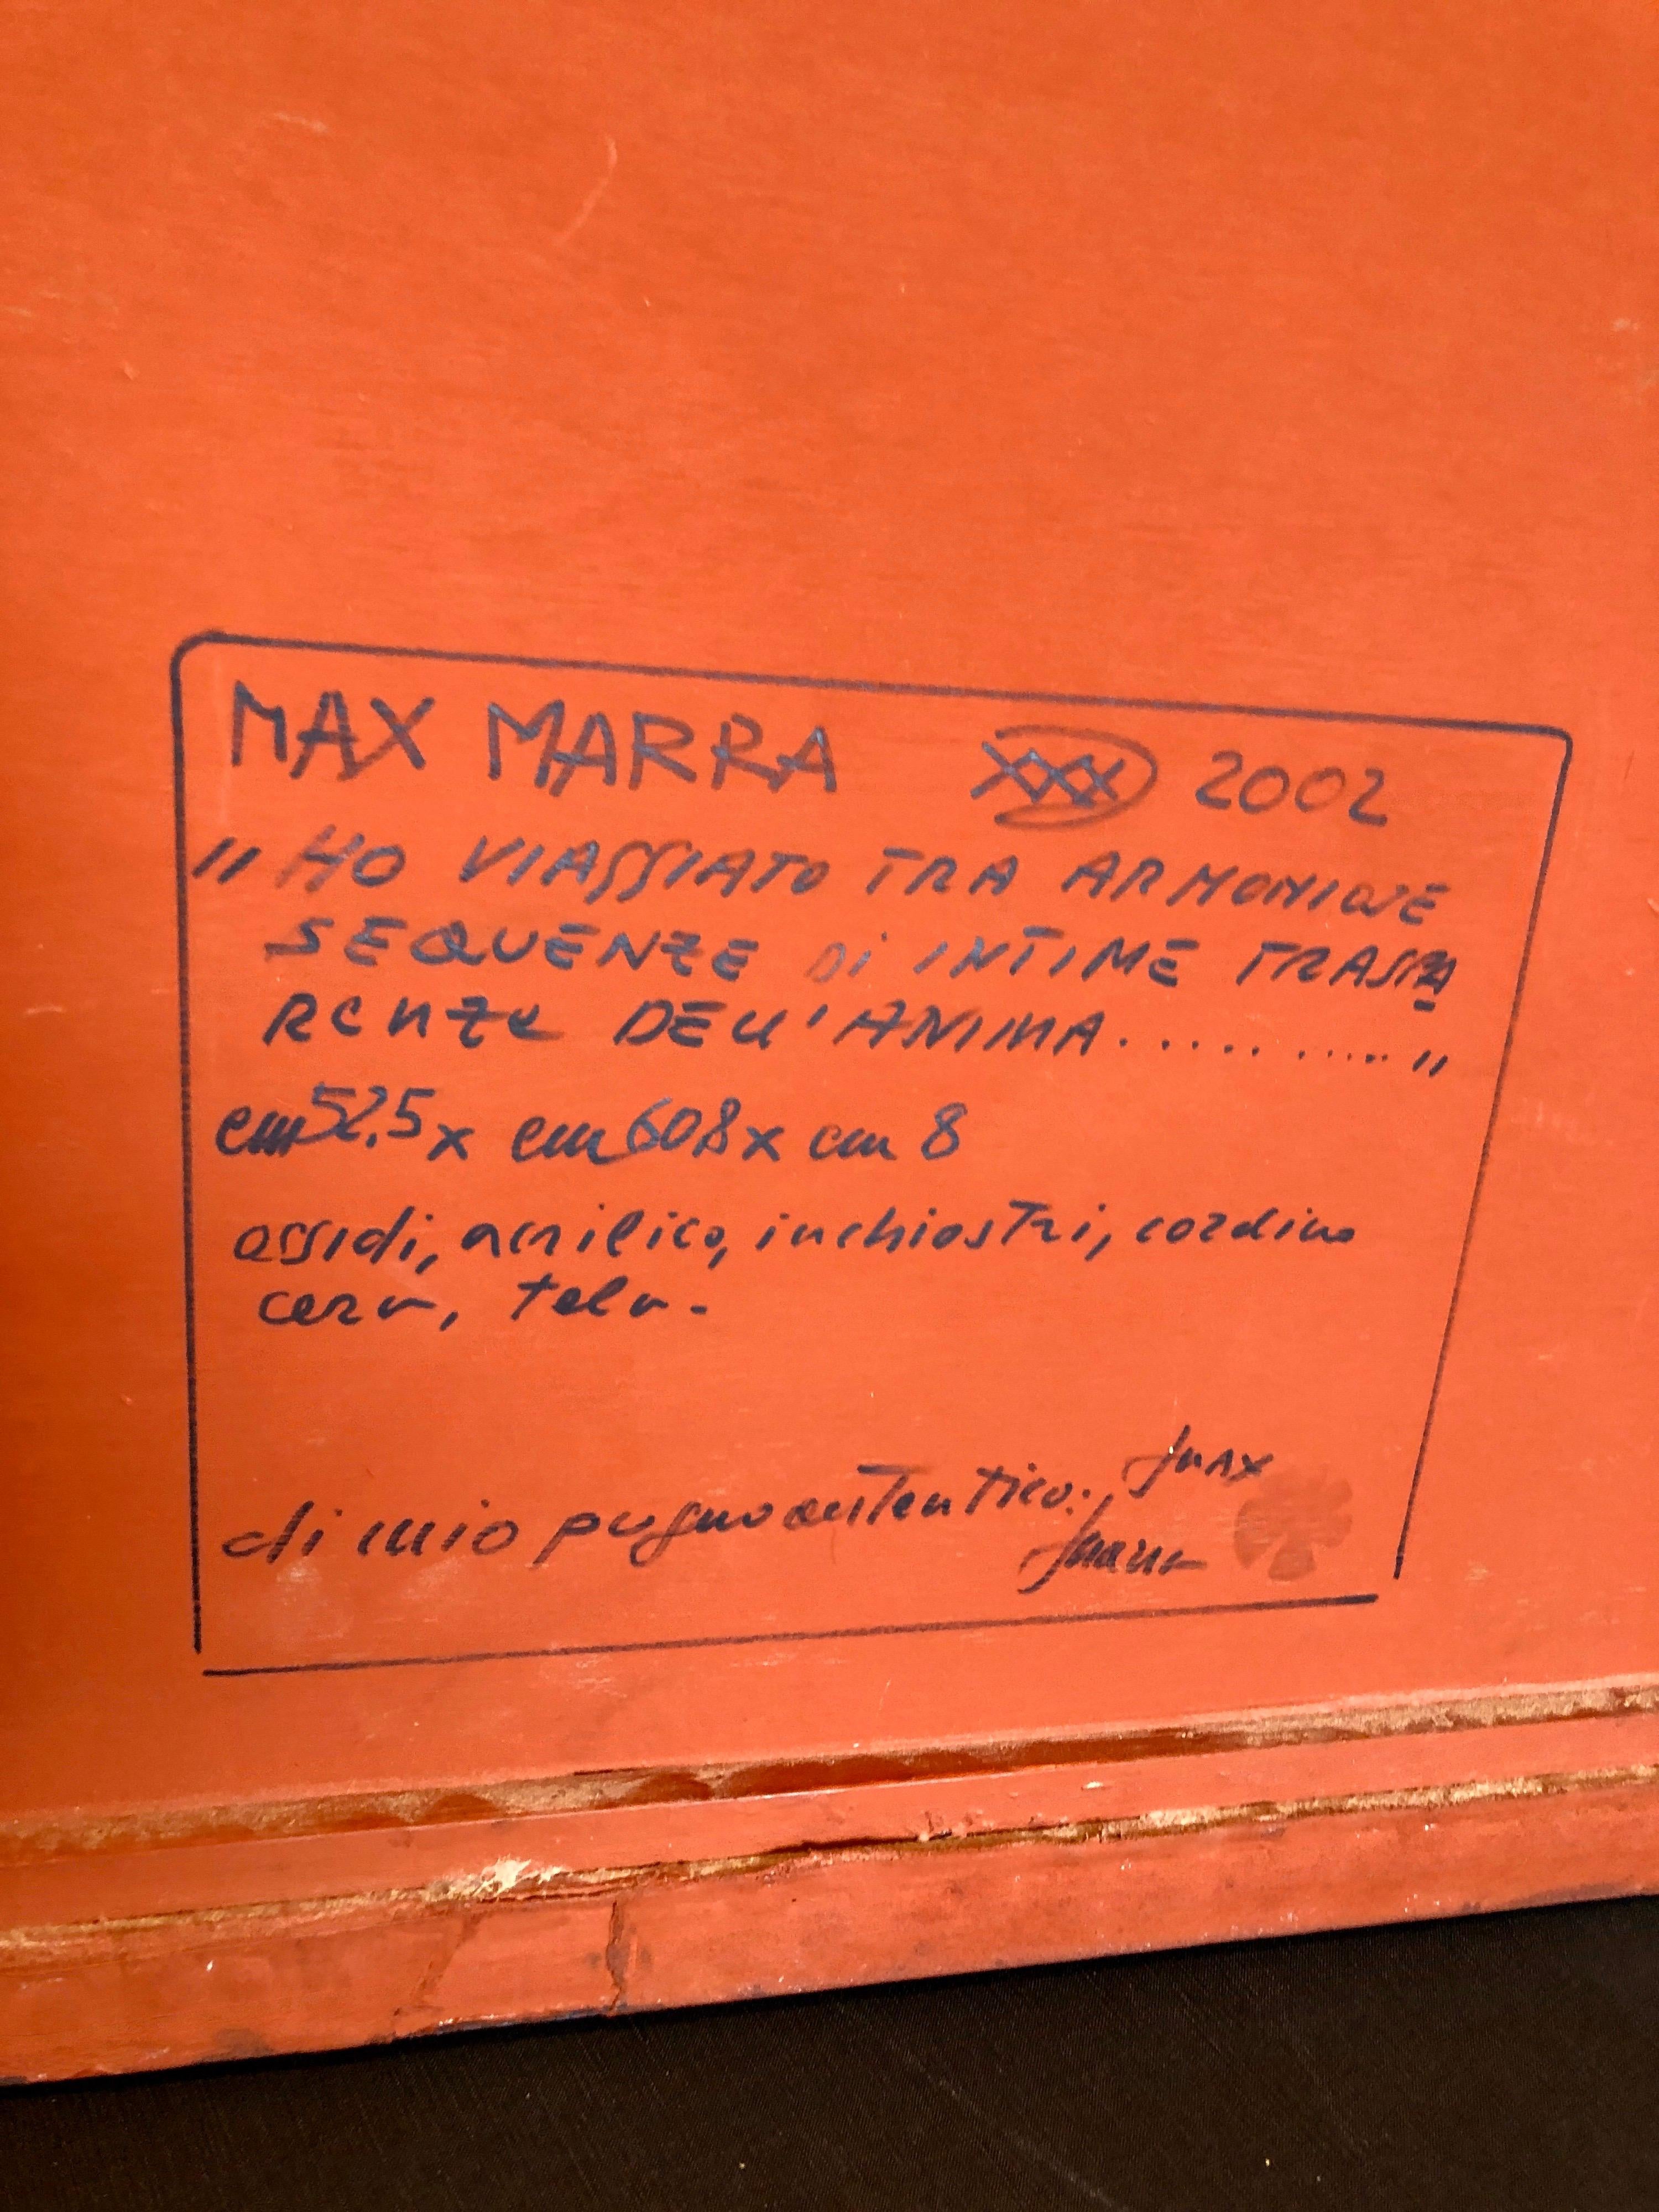 MAX MARRA XXX 2002
"HO VIAGGIATO TRA ARMONIOSE
SEQUENZE Di INTIME TRASPA
RENZE DELL'ANIMA.........."
cm 52,5 x cm 60,8 x cm 8
ossidi, acrilico, inchiostri, cordino
cera, tela.
di mio pugno autentico: Max
Marra